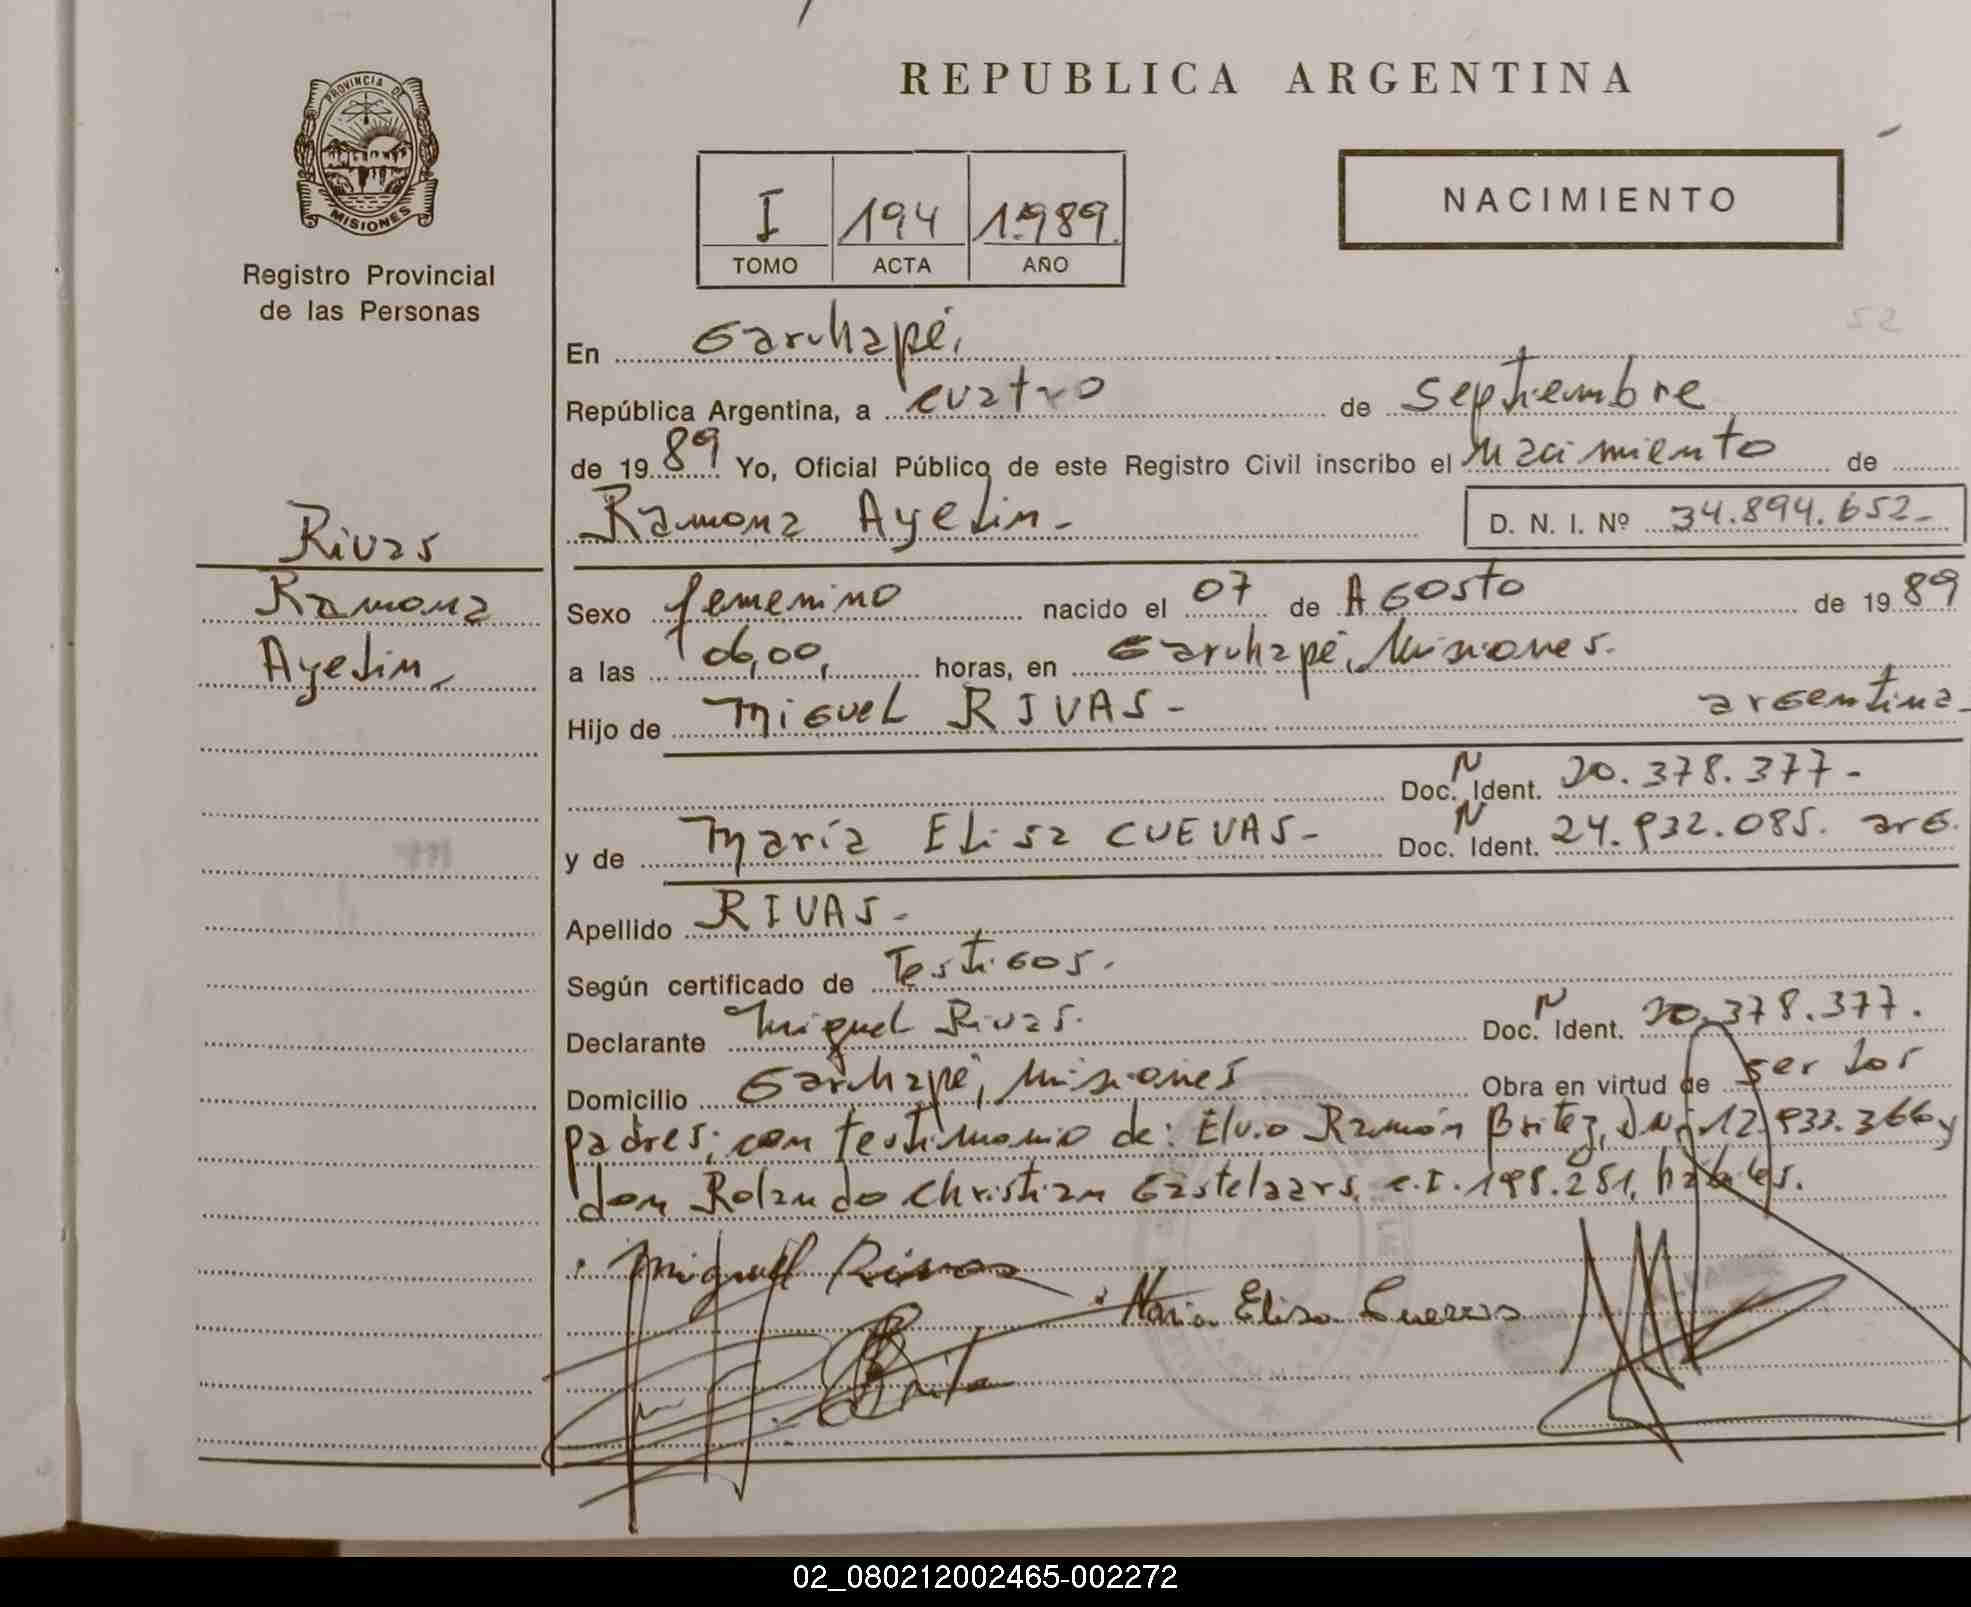 REPUBLICA ARGENTINA
PROVINCIA DE
MISIONES
Registro Provincial
de las Personas
NACIMIENTO
I 194 1.989.
TOMO ACTA AÑO
52
En Garuhapé,
República Argentina, a cuatro de septiembre
de 1989 Yo, Oficial Público de este Registro Civil inscribo el nacimiento de
Ramona Ayelin.- D. N. I. Nº 34.894.652-
Rivas
Ramona
Ayelin.
Sexo femenino nacido el 07 de Agosto de 1989
a las 06,00, horas, en Garuhapé, Misiones.
Hijo de Miguel RIVAS- argentina-
Doc. N Ident. 20.378.377-
y de María Elisa CUEVAS- Doc. N Ident. 24.932.085. arg.
Apellido RIVAS-
Según certificado de Testigos.
Declarante Miguel Rivas. Doc. N Ident. 20.378.377.
Domicilio Garuhapé, Misiones Obra en virtud de ser los
padres; con testimonio de: Elvio Ramón Britez, DNI 12.933.366 y
don Rolando Christian Gastelaars, C.I. 198.251, hábiles.
Miguel Rivas
Maria Elisa Cuevas
02_080212002465-002272